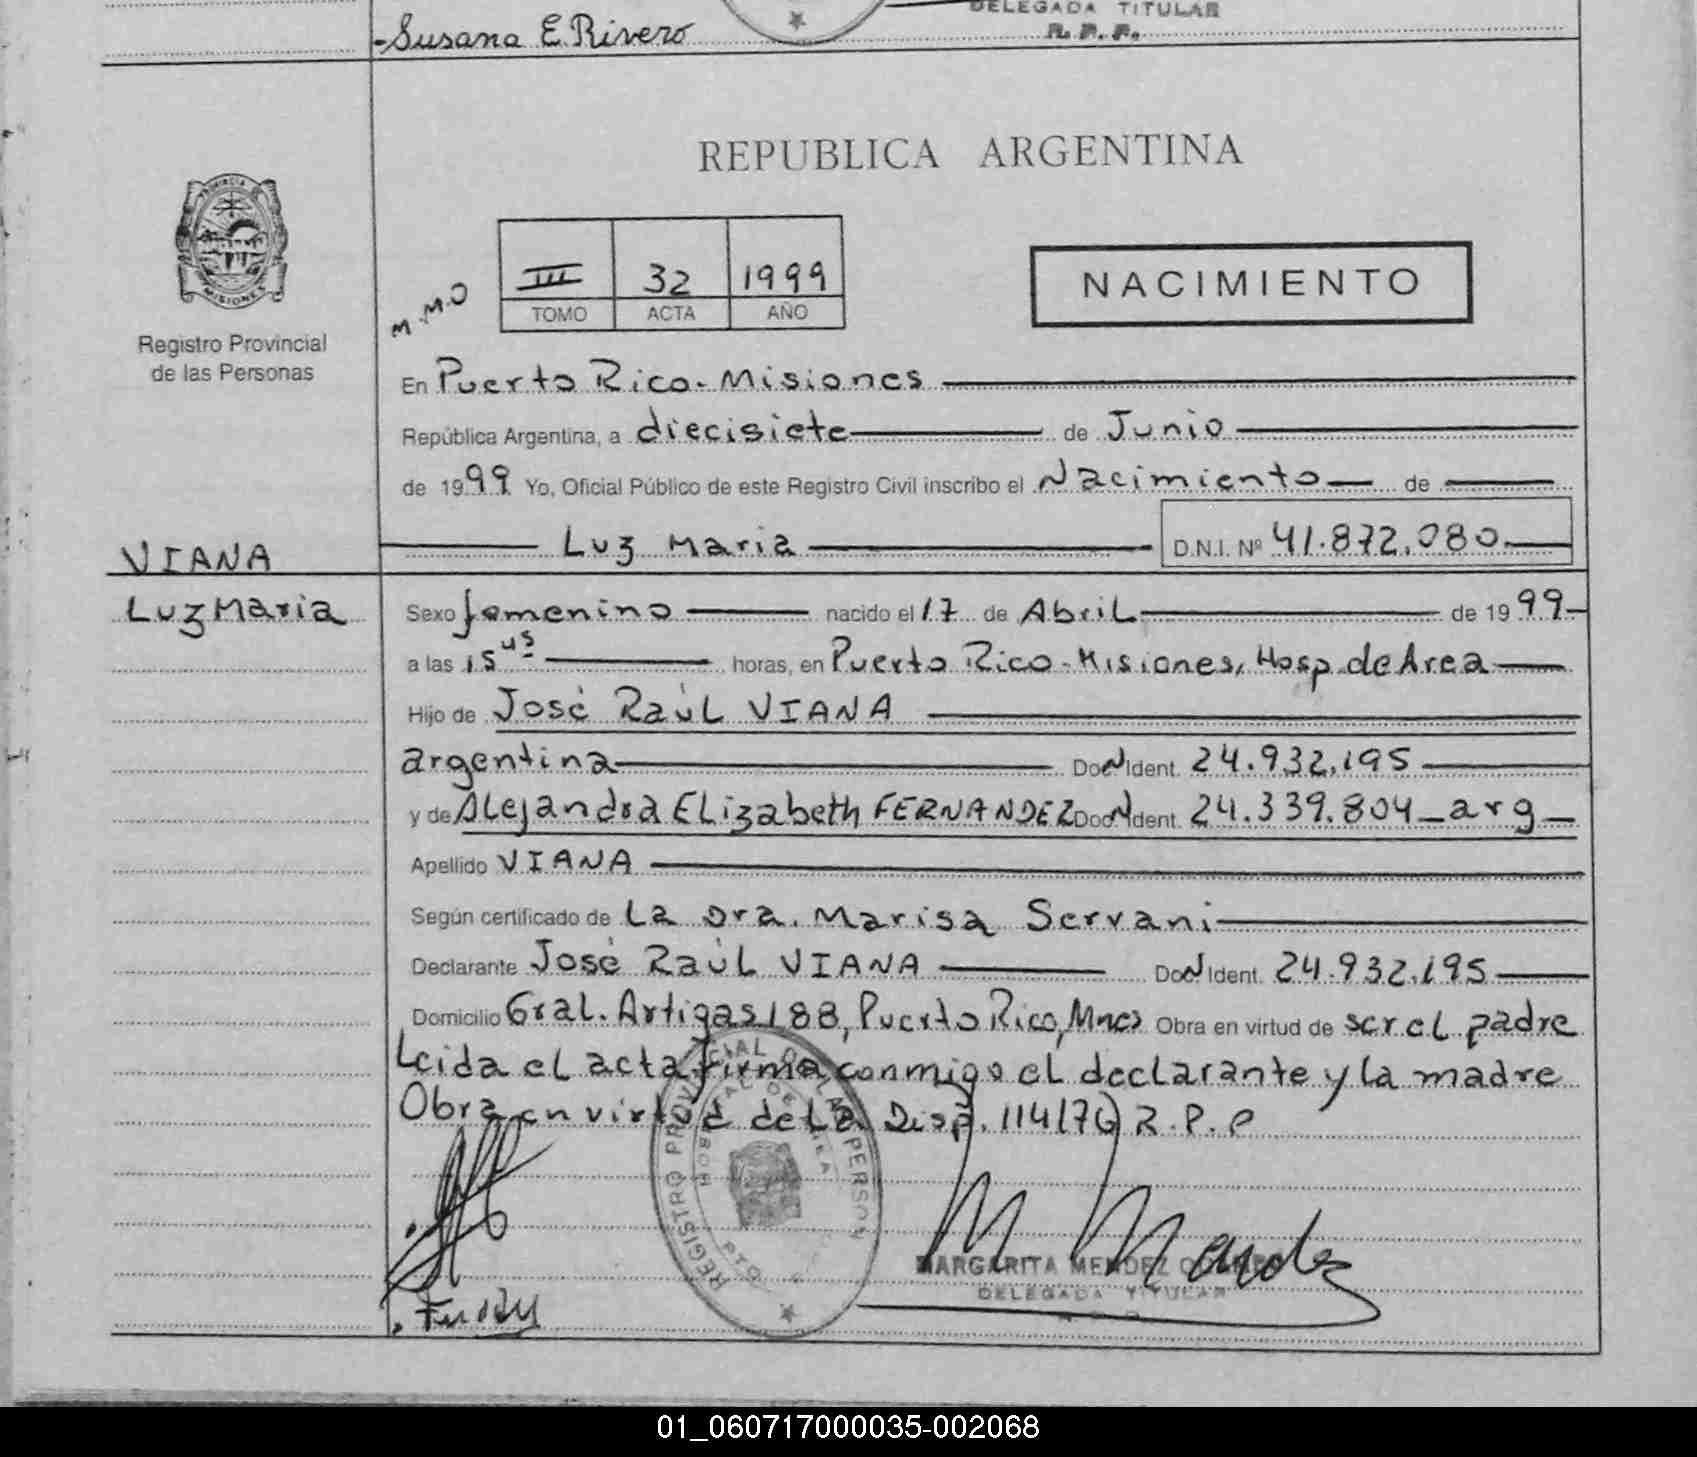 DELEGADA TITULAR
R. P. P.
-Susana E. Rivero
REPUBLICA ARGENTINA
PROVINCIA DE
MISIONES
Registro Provincial
de las Personas
M.M.O
III 32 1999
TOMO ACTA AÑO
NACIMIENTO
En Puerto Rico-Misiones
República Argentina, a diecisiete de Junio
de 1999 Yo, Oficial Público de este Registro Civil inscribo el Nacimiento de
VIANA
Luz Maria D.N.I. Nº 41.872.080
Luz Maria
Sexo femenino nacido el 17 de Abril de 1999
a las 15 45 horas, en Puerto Rico-Misiones, Hosp. de Area
Hijo de José Raúl VIANA
argentina Doc N Ident. 24.932.195
y de Alejandra Elizabeth FERNANDEZ Doc N Ident. 24.339.804 arg
Apellido VIANA
Según certificado de La Dra. Marisa Servani
Declarante José Raúl VIANA Doc N Ident. 24.932.195
Domicilio Gral. Artigas 188, Puerto Rico, Mnes Obra en virtud de ser el padre
Leida el acta firma conmigo el declarante y la madre
Obra en virtud de la Disp. 114/76 R.P.P
REGISTRO PROVINCIAL DE LAS PERSONAS
HOSPITAL DE AREA
PTO.
MARGARITA MENDEZ
DELEGADA TITULAR
01_060717000035-002068